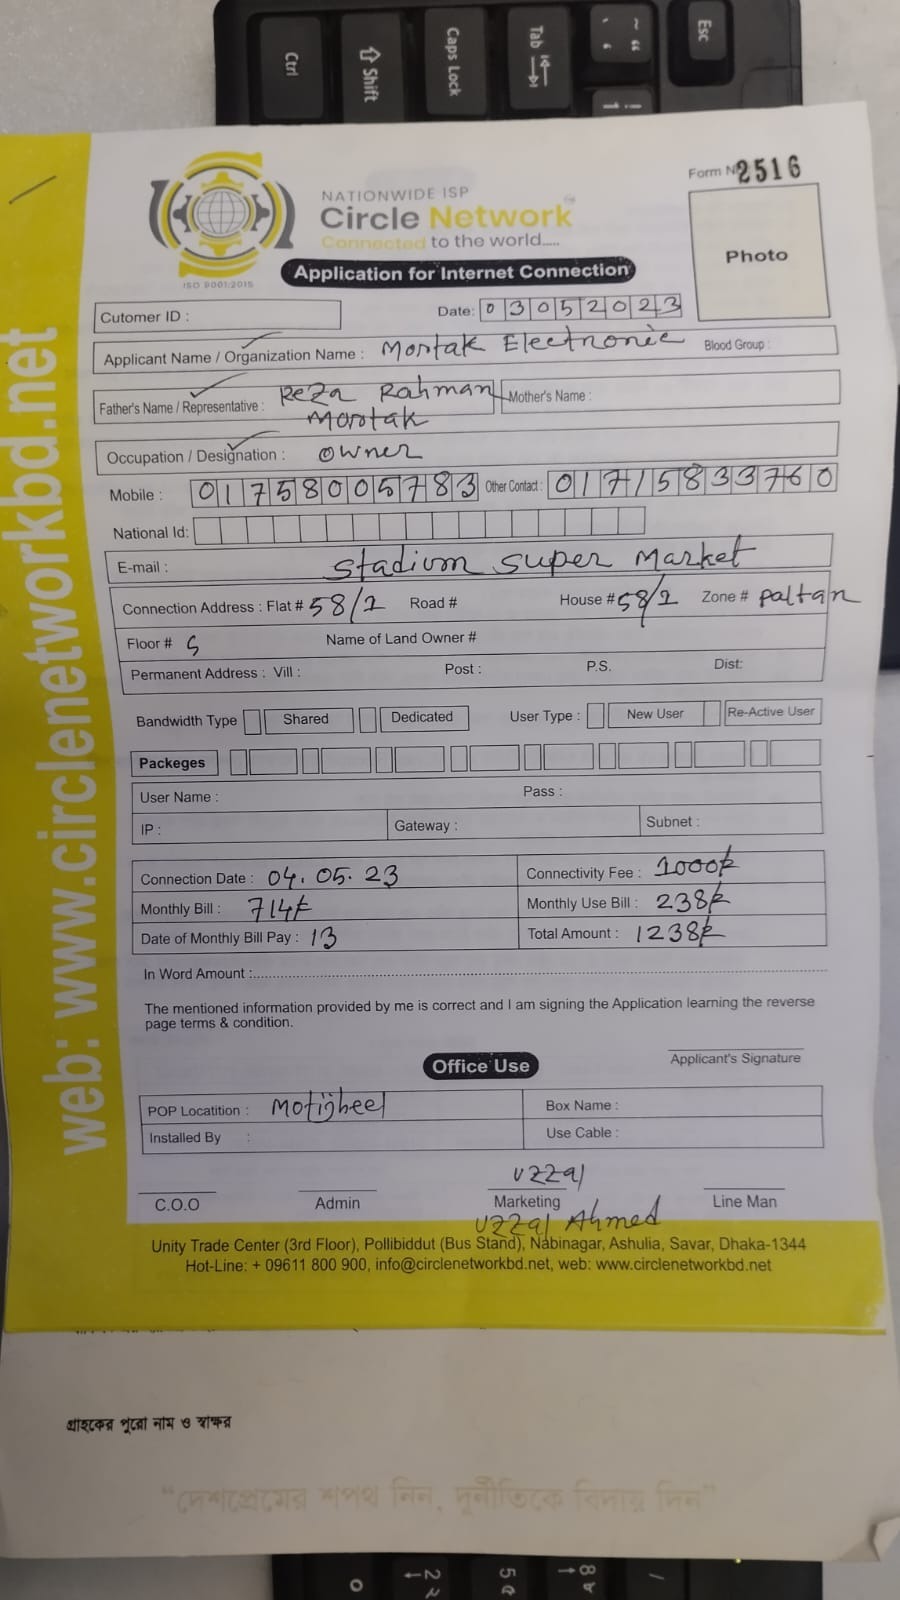 Esc
Tab
Caps Lock
Shift
Ctrl
web: www.circlenetworkbd.net
Form № 2516
NATIONWIDE ISP
Circle Network
Connected to the world.....
ISO 9001:2015
Photo
Application for Internet Connection
Cutomer ID :
Date: 03052023
Applicant Name / Organization Name : Mortak Electronic Blood Group :
Father's Name / Representative : Reza Rahman Mother's Name :
Mortak
Occupation / Designation : Owner
Mobile : 01758005783 Other Contact : 01715833760
National Id:
E-mail : Stadium Super Market
Connection Address : Flat # 58/2 Road # House # 58/2 Zone # Paltan
Floor # Name of Land Owner #
Permanent Address : Vill : Post : P.S. Dist:
Bandwidth Type Shared Dedicated User Type : New User Re-Active User
Packeges
User Name : Pass :
IP : Gateway : Subnet :
Connection Date : 04.05.23 Connectivity Fee : 1000tk
Monthly Bill : 714tk Monthly Use Bill : 238tk
Date of Monthly Bill Pay : 13 Total Amount : 1238tk
In Word Amount :
The mentioned information provided by me is correct and I am signing the Application learning the reverse
page terms & condition.
Applicant's Signature
Office Use
POP Locatition : Motijheel Box Name :
Installed By : Use Cable :
Uzzal
C.O.O Admin Marketing Line Man
Uzzal Ahmed
Unity Trade Center (3rd Floor), Pollibiddut (Bus Stand), Nabinagar, Ashulia, Savar, Dhaka-1344
Hot-Line: + 09611 800 900, info@circlenetworkbd.net, web: www.circlenetworkbd.net
গ্রাহকের পুরো নাম ও স্বাক্ষর
"দেশপ্রেমের শপথ নিন, দুর্নীতিকে বিদায় দিন"